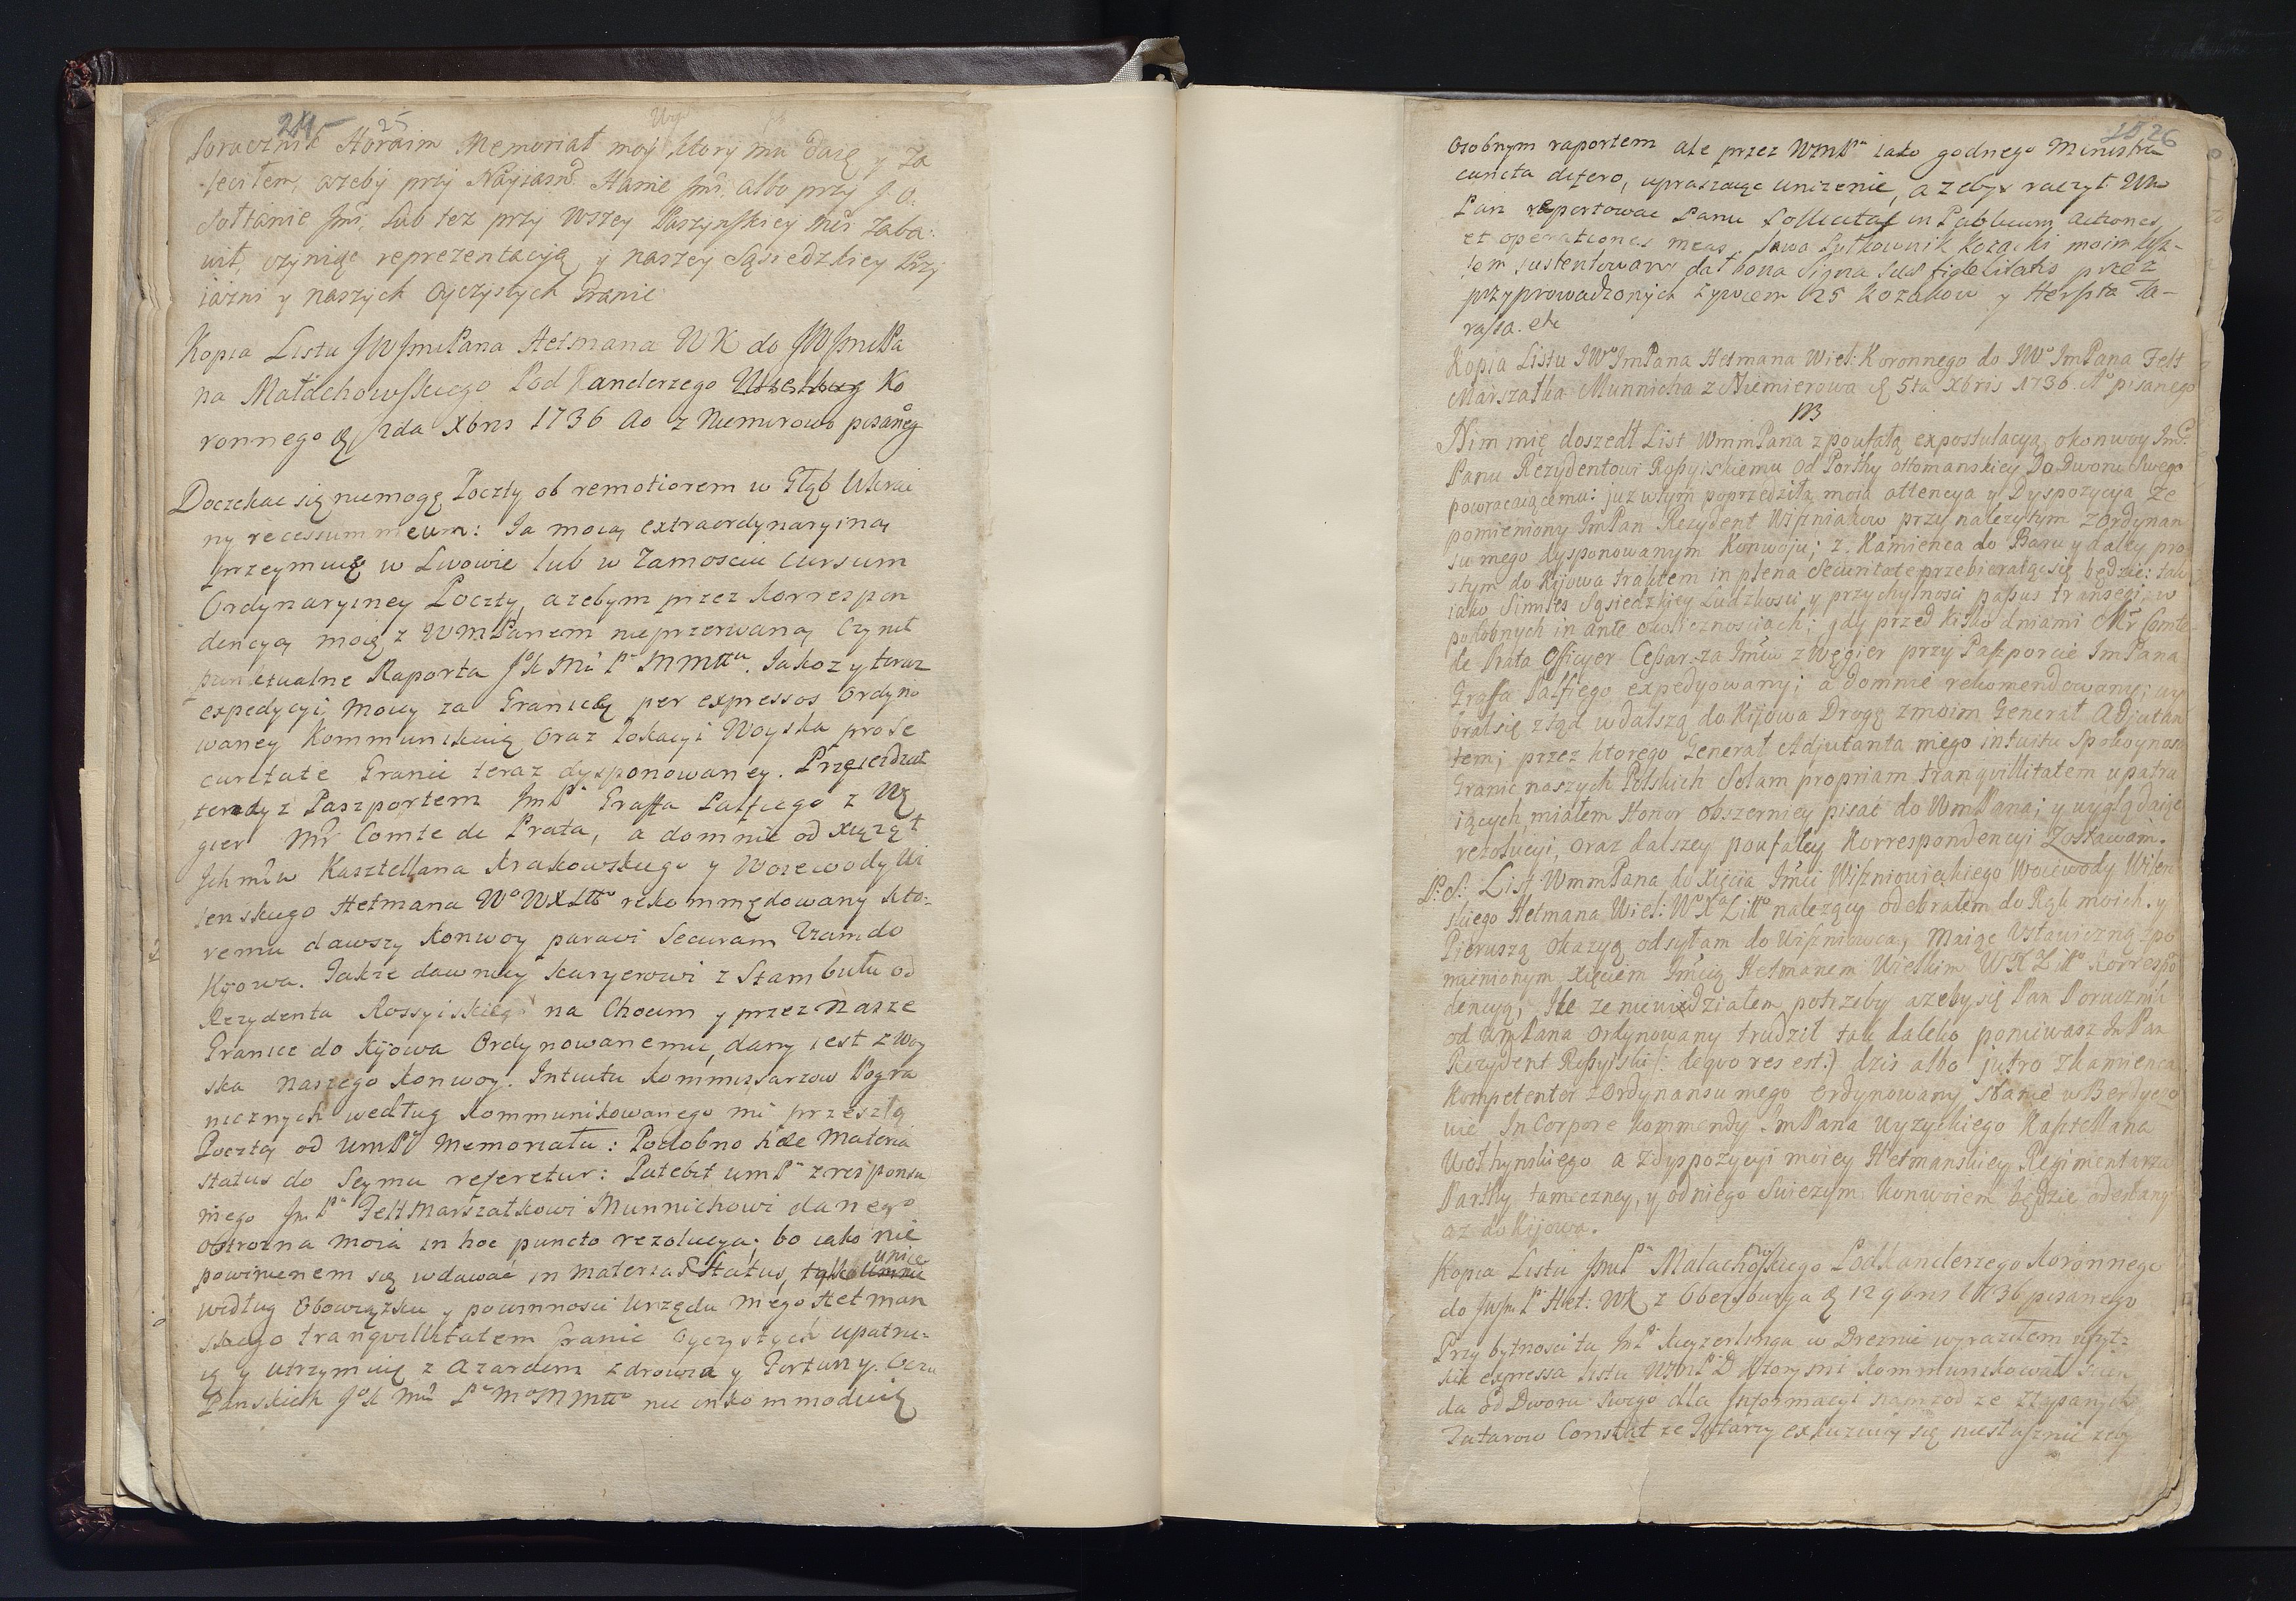 245 25
Poracznik Horaim Memoriał moy ktory mu daię y za
leciłem, ażeby przy Nayiasn̄ Hanie Jmi albo przy J. O.
Sołtanie Jmi, lub tez przy Wszey Paszynskiey Mci zaba
wił, czyniąc reprezentacyą y naszey Sąsiedzkiey Przy
iazni y naszych Oyczystych Granic
Kopia Listu JWJmPana Hetmana WK do JWJmPa
na Małachowskiego Pod Kanclerzego Ko
ronnego d 2da Xbris 1736 Ao z Niemirowa pisaneg
Doczekac się niemogę Poczty ob remotiorem w Głąb Ukrai
ny recessum meum: Ja moią extraordynaryiną
przeymuię w Lwowie lub w Zamosciu Cursum
Ordynaryiney Poczty, azebym przez Korrespon
dencyą moię z WMPanem nieprzerwaną Czynił
punktualne Raporta JK Mci Pu MMttu. Jakoz y teraz
expedycyi mowy za Granicę per expressos Ordyno
waney Kommunikuię Oraz lokacyi Woyska pro Se
curitate Granic teraz dysponowaney. Przeiezdzał
tendy z Paszportem ImPa Graffa Palfiego z Wę
gier Mr Comte de Prata, a domnie od Xiąząt
Ichmciw Kasztellana Krakowskiego y Woiewody Wi
lenskiego Hetmana Wo WXLtto rekommędowany kto-
remu dawszy Konwoy parawi Securam Viam do
Kijowa. Takze dawniey Kuryerowi z Stambułu od
Rezydenta Rossyiskiego na Chocim y przez Nasze
Granice do Kijowa Ordynowanemu, dany iest z Woy
ska naszego Konwoy. Intuitu Kommissarzow Pogra
nicznych według Kommunikowanego mi przeszłą
Pocztą od WmPa Memoriału: Podobno hæc Materia
status do Seymu referetur: Patebit WmPa z responsu
mego JmPu Feltmarszałkowi Munnichowi danego
Obtrozna moia in hoc puncto rezolucya; bo iako nie
powinienem się wdawać in materias Status, unice
według Obowiązku y powinnosci Urzędu mego Hetman
skiego tranqvillitatem Granic Oyczystych upatru-
ię y utrzymuię z azardem zdrowia y Fortuny. Oczu
Panskich JK Mci Pa MoMMtto nie inkommoduię
26
Osobnym raportem ale przez WmPa iako godnego Ministra
cuncta defero, upraszaiąc unizenie, a zebys raczył Wm
Pan reportowac Panu Sollicitas in Publicum actiones,
et operationes meas, Sawa Pułkownik Kozacki moim kosz-
tem sustentowany dat bona Signa suæ fidelitatis przez
przyprowadzonych żywcem 25 Kozakow y Herszta Ta-
rasa. etc
Kopia Listu JWoImPana Hetmana Wiel: Koronnego do JWo ImPana Felt
Marszałka Munnicha z Niemierowa d 5ta Xbris 1736. Ao pisanego
Nim mię doszedł List WmmPana z poufałą expostulacyą, o konwoy Jmci
Panu Rezydentowi Rossyiskiemu Od Porthy ottomanskiey Do Dworu Swego
powracaiącemu: juz wtym poprzedziła moia attencya y Dyspozycya ze
pomieniony ImPan Rezydent Wiszniakow przy nalezytym z Ordynan
su mego dysponowanym Konwoju; z Kamienca do Baru y daley pro
stym do Kijowa traktem in plena Securitate przebieraiąc się będzie: tak
iako Similes Sąsiedzkiey Ludzkosci y przychylnosci passus transegi, w
podobnych in ante okolicznosciach; gdy przed kilko dniami Mr Comte
de Prata Officyer Cesar: za Imciw z Węgier przy Paszporcie ImPana
Graffa Palfiego expedyowany; a domnie rekomendowany; wy
brał się ztąd w dalszą do Kijowa Drogę z moim General Adjutan
tem; przez ktorego General Adjutanta mego intuitu Spokoynosci
Granic naszych Polskich Solam propriam tranqvillitatem upatru
iących, miałem Honor obszerniey pisać do WmPana; y wyglądaiąc
rezolucyi, oraz dalszey poufałey Korrespondencyi Zostawam.
P.S: List WmmPana do Xięcia Imci Wiszniowieckiego Woiewody Wilen
skiego Hetmana Wiel: Wo Xa Litto nalezący odebrałem do Rąk moich. y
Pierwszą Okazyą odsyłam do Wiszniowca; Maiąc Ustawiczną z po
mienionym Xięciem Imcią Hetmanem Wielkim WXLitto Korrespo
dencyą; Ile ze niewidziałem potrzeby azeby się Pan Porucznik
od WmPana Ordynowany trudził tak daleko poniewasz ImPan
Rezydent Rossyiski /: de quo res est:/ dzis albo jutro z Kamienca
Kompetenter z Ordynansu mego Ordynowany, Stanie w Berdyczo
wie In Corpore Kommendy ImPana Uzyckiego Kasztellana
Wołhynskiego a z dyspozycyi moiey Hetmanskiey Regimentarza
Parthy tameczney, y od niego Swiezym Konwoiem będzie odesłany
az do Kijowa.
Kopia Listu JmPa Małachowskiego Podkanclerzego Koronnego
do JWJmPa Het: WK z Obersburga d 12 9bris 1736 pisanego
Przy bytnosci tu JmPa Keyzerlinga w Dreznie wyraziłem wszyt-
kie expressa listu WmPD ktory mi kommunikował
da od Dworu swego dla Informacyi naprzod ze Złapanych
Tatarow Constat ze Tatarzy exkuzuią się niesłusznie zeby